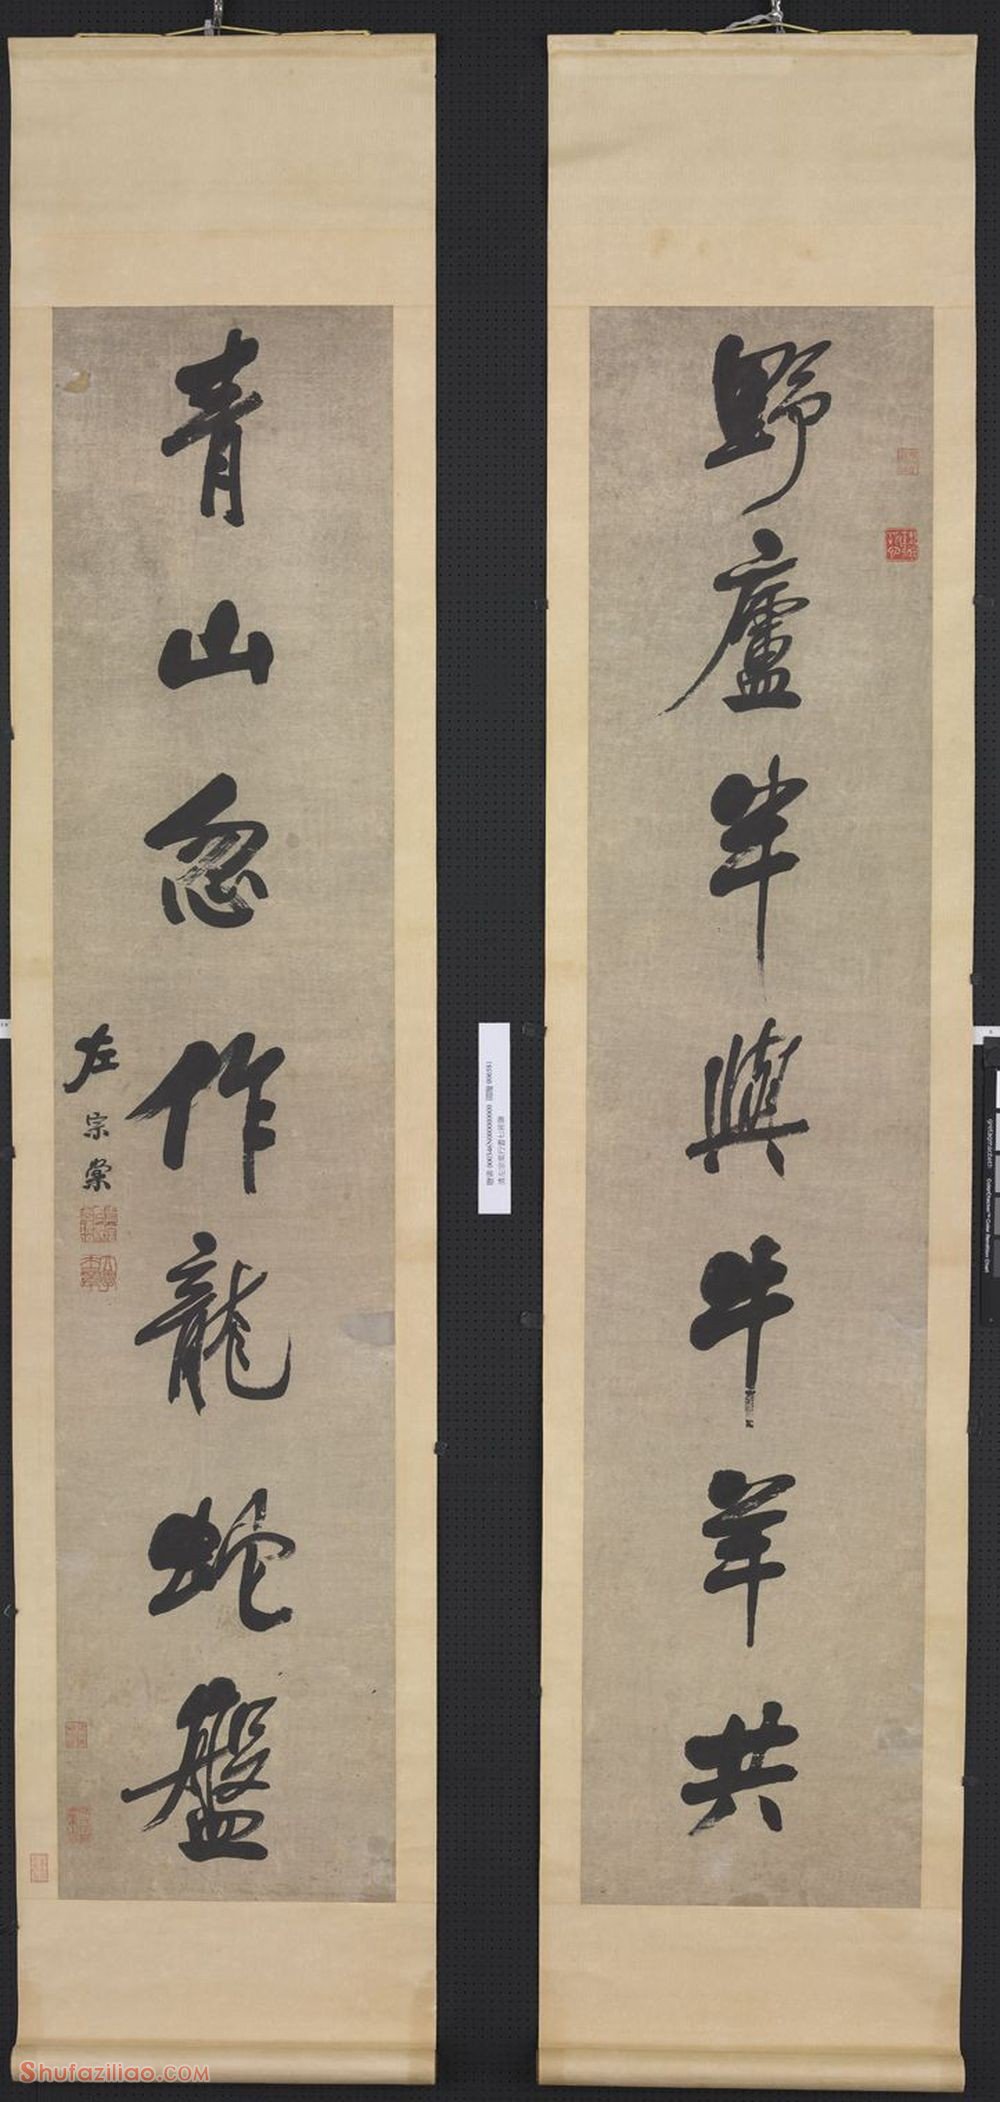 野廬半與牛羊共
青山忽作龍蛇盤
左宗棠
Shufaziliao.com